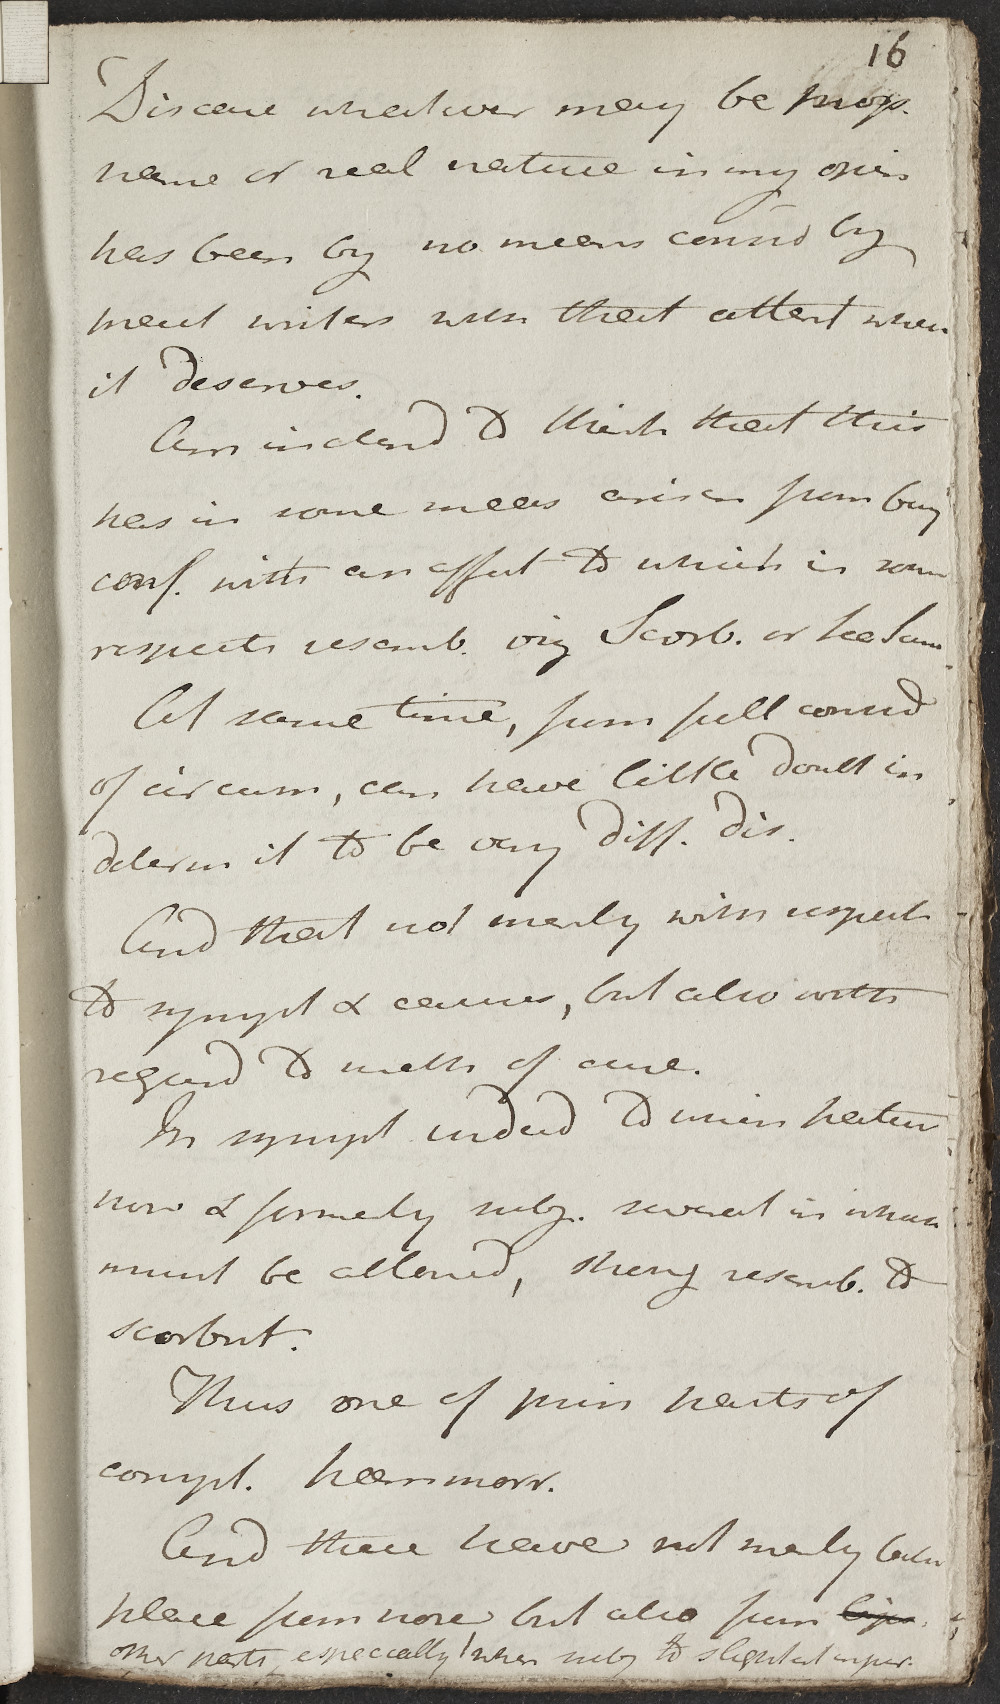 16
Disease whatever may be prop.
name or real nature in my opin
has been by no means consid by
most writers with that attent when
it deserves.
Am inclend to think that this
has in some meas arisen from being
conf. with an affect to which in some
respects resemb. viz Scorb. or
At same time, from full consid
of circum, can have little doubt in
determ it to be very diff. dis.
And that not merly with respect
to sympt & causes, but also with
regard to meth of cure.
In sympt indeed to which patien
now & formerly subj. several in which
must be allowed, strong resemb. to
scorbut.
Thus one of prin parts of
compt. haemmorr.
And these have not merly taken
place from nose, but also from lips
other parts, especially when subj to slightest